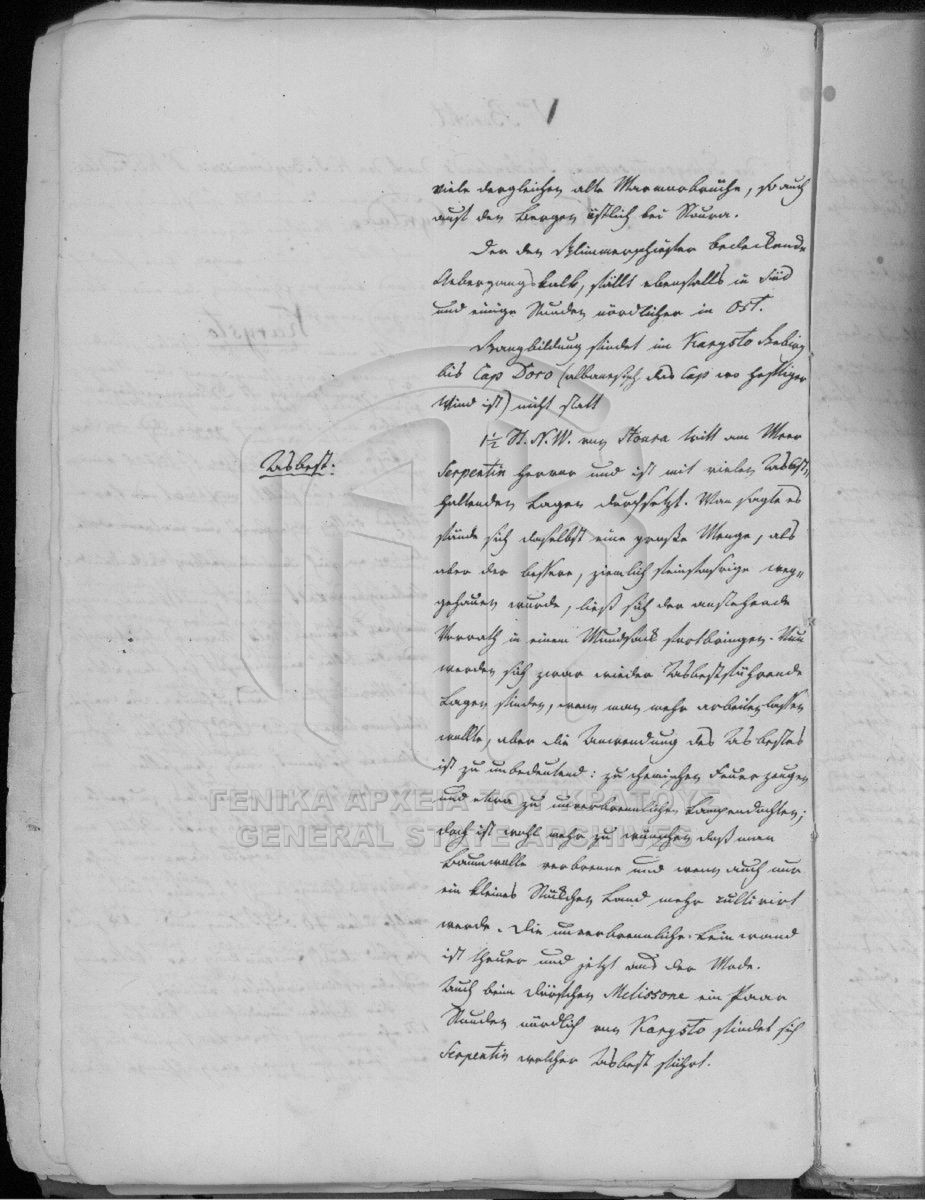 viele dergleichen alte Marmorbrüche, so auch
auf den Bergen östlich bei Stoura.
Der den Glimmerschiefer bedeckende
Uebergangskalk, fällt ebenfalls in Süd
und einige Stunden nördlicher in Ost.
Gangbildung findet im Karysto Gebirg
bis Cap Doro (albanesisch das Cap wo heftiger
Wind ist) nicht statt
1½ St. N.W. von Stoura tritt am Meer
Asbest:
Serpentin hervor und ist mit vielen Asbest
haltenden Lagen durchsetzt. Man sagte es
fände sich daselbst eine große Menge, als
aber der bessere, ziemlich feinfasrige weg-
gehauen wurde, ließ sich der anstehende
Vorrath in einen Mundsack fortbringen. Nun
werden sich zwar wieder Asbestführende
Lagen finden, wenn man mehr arbeiten lassen
wollte, aber die Anwendung des Asbestes
ist zu unbedeutend: zu chemischen Feuerzeugen
und etwa zu unverbrennlichen Lampendochten;
doch ist wohl mehr zu wünschen daß man
Baumwolle verbrenne und wenn auch nur
ein kleines Stückchen Land mehr cultivirt
werde. Die unverbrennliche Leinwand
ist theuer und jetzt aus der Mode.
Auch beim Dörfchen Melissone ein Paar
Stunden nördlich von Karysto findet sich
Serpentin welcher Asbest führt.
ΓΕΝΙΚΑ ΑΡΧΕΙΑ ΤΟΥ ΚΡΑΤΟΥΣ
GENERAL STATE ARCHIVES